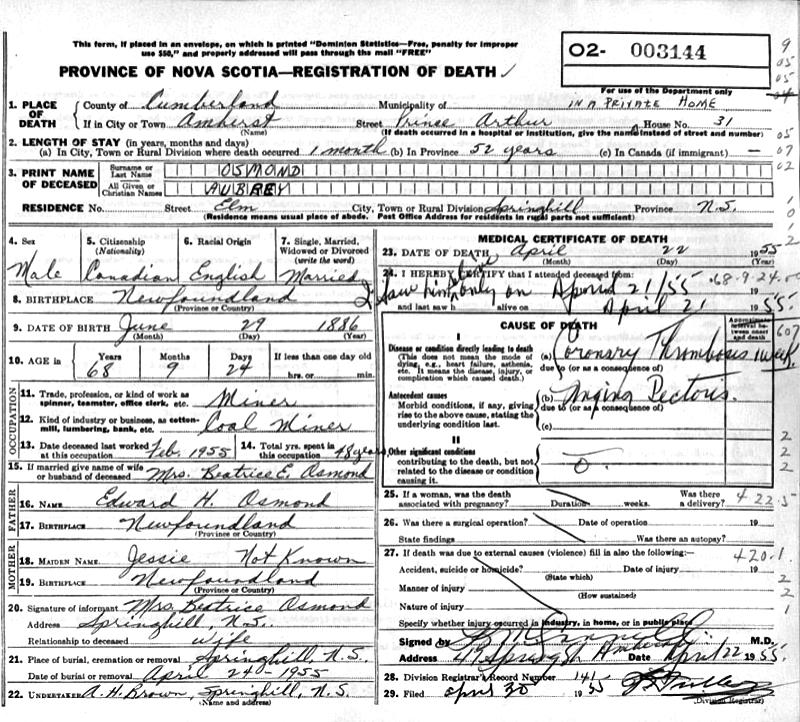 This form, if placed in an envelope, on which is printed "Dominion Statistics—Free, penalty for improper
use $50," and properly addressed will pass through the mail "FREE"
O2- 003144
PROVINCE OF NOVA SCOTIA—REGISTRATION OF DEATH
For use of the Department only
1. PLACE OF DEATH County of Cumberland Municipality of IN A PRIVATE HOME
If in City or Town Amherst Street Prince Arthur House No. 31
(Name) (If death occurred in a hospital or institution, give the name instead of street and number)
2. LENGTH OF STAY (in years, months and days)
(a) In City, Town or Rural Division where death occurred 1 month (b) In Province 52 years (c) In Canada (if immigrant) —
3. PRINT NAME OF DECEASED Surname or Last Name OSMOND
All Given or Christian Names AUBREY
RESIDENCE No. Street Elm City, Town or Rural Division Springhill Province N.S.
(Residence means usual place of abode. Post Office Address for residents in rural parts not sufficient)
4. Sex 5. Citizenship (Nationality) 6. Racial Origin 7. Single, Married, Widowed or Divorced (write the word)
Male Canadian English Married
8. BIRTHPLACE Newfoundland
(Province or Country)
9. DATE OF BIRTH June 29 1886
(Month) (Day) (Year)
10. AGE in Years Months Days If less than one day old
68 9 24 hrs. or min.
OCCUPATION
11. Trade, profession, or kind of work as spinner, teamster, office clerk, etc. Miner
12. Kind of industry or business, as cotton-mill, lumbering, bank, etc. Coal Miner
13. Date deceased last worked at this occupation Feb. 1955 14. Total yrs. spent in this occupation 48 years
15. If married give name of wife or husband of deceased Mrs. Beatrice E. Osmond
FATHER
16. NAME Edward H. Osmond
17. BIRTHPLACE Newfoundland
(Province or Country)
MOTHER
18. MAIDEN NAME Jessie Not Known
19. BIRTHPLACE Newfoundland
(Province or Country)
20. Signature of informant Mrs. Beatrice Osmond
Address Springhill, N.S.
Relationship to deceased wife
21. Place of burial, cremation or removal Springhill, N.S.
Date of burial or removal April 24 - 1955
22. UNDERTAKER A. H. Brown, Springhill, N.S.
(Name and address)
MEDICAL CERTIFICATE OF DEATH
23. DATE OF DEATH April 22 1955
(Month) (Day) (Year)
24. I HEREBY CERTIFY that I attended deceased from: 68-9-24
I saw him only on April 21/55
and last saw h alive on April 21 1955.
CAUSE OF DEATH Approximate interval between onset and death
I
Disease or condition directly leading to death
(This does not mean the mode of dying, e.g., heart failure, asthenia, etc. It means the disease, injury, or complication which caused death.)
(a) Coronary Thrombosis 1 week
due to (or as a consequence of)
Antecedent causes
Morbid conditions, if any, giving rise to the above cause, stating the underlying condition last.
(b) Angina Pectoris.
due to (or as a consequence of)
(c)
II
Other significant conditions
contributing to the death, but not related to the disease or condition causing it.
O.
25. If a woman, was the death associated with pregnancy? Duration weeks. Was there a delivery? 422.5
26. Was there a surgical operation? Date of operation 19
State findings Was there an autopsy?
27. If death was due to external causes (violence) fill in also the following:— 420.1
Accident, suicide or homicide? Date of injury 19
(State which)
Manner of injury
(How sustained)
Nature of injury
Specify whether injury occurred in industry, in home, or in public place
Signed by M.D.
Address Amherst Date April 22 1955.
28. Division Registrar's Record Number 141
29. Filed April 30 1955
(Division Registrar)